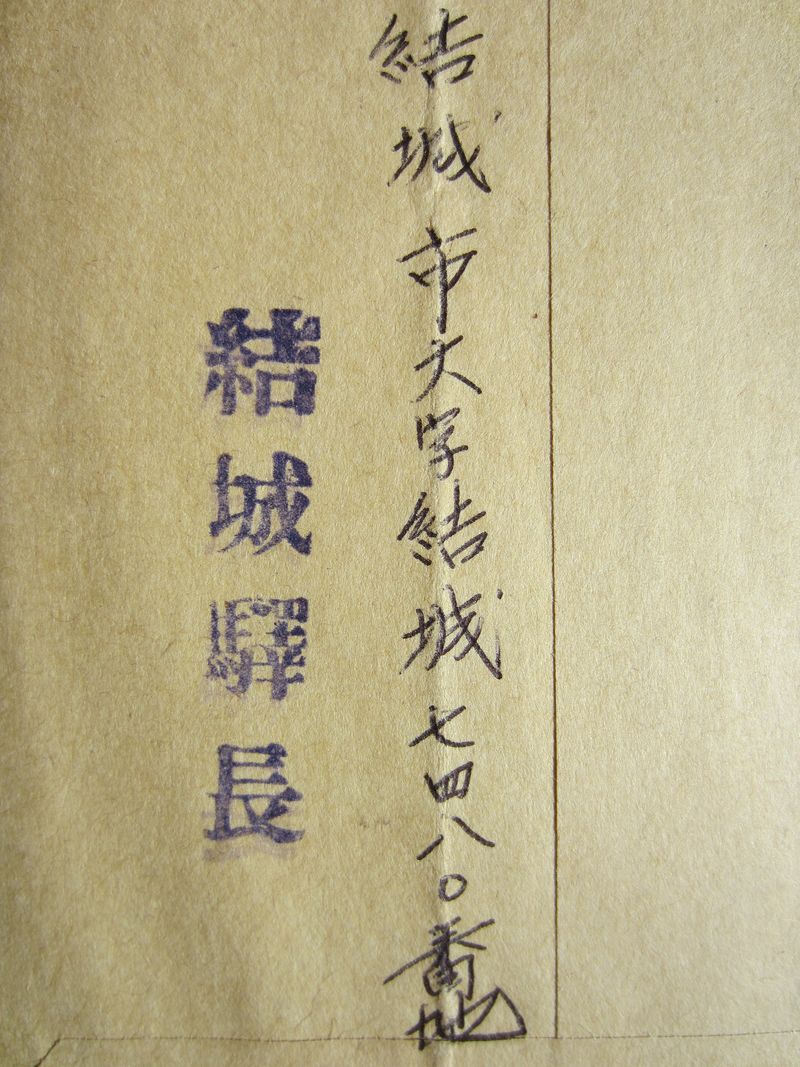 結城市大字結城七四八〇番地
結城驛長